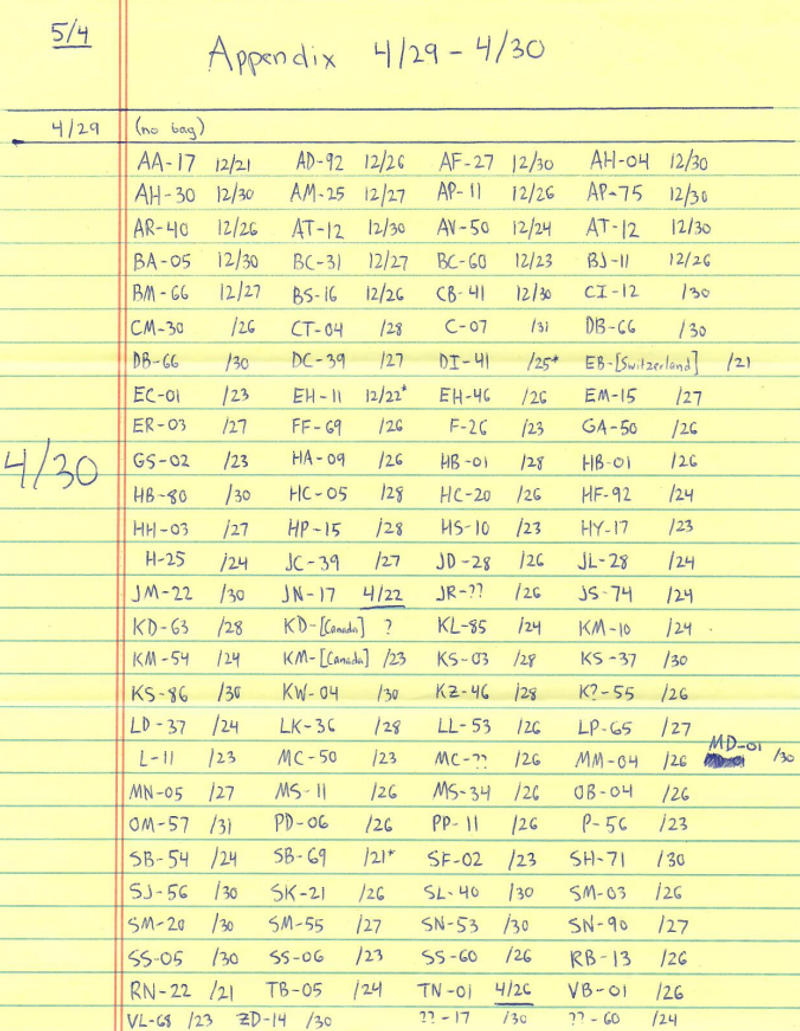 5/4
Appendix 4/29 - 4/30
4/29 (no bag)
AA-17 12/21 AD-92 12/26 AF-27 12/30 AH-04 12/30
AH-30 12/30 AM-25 12/27 AP-11 12/26 AP-75 12/30
AR-40 12/26 AT-12 12/30 AV-50 12/24 AT-12 12/30
BA-05 12/30 BC-31 12/27 BC-60 12/23 BJ-11 12/26
BM-66 12/27 BS-16 12/26 CB-41 12/30 CI-12 /30
CM-30 /26 CT-04 /28 C-07 /31 DB-66 /30
DB-66 /30 DC-39 /27 DI-41 /25* EB-[Switzerland] /21
EC-01 /23 EH-11 12/22* EH-46 /26 EM-15 /27
ER-03 /27 FF-69 /26 F-26 /23 GA-50 /26
4/30
GS-02 /23 HA-09 /26 HB-01 /28 HB-01 /26
HB-80 /30 HC-05 /28 HC-20 /26 HF-92 /24
HH-03 /27 HP-15 /28 HS-10 /23 HY-17 /23
H-25 /24 JC-39 /27 JD-28 /26 JL-28 /24
JM-22 /30 JN-17 4/22 JR-?? /26 JS-74 /24
KD-63 /28 KD-[Canada] ? KL-85 /24 KM-10 /24
KM-54 /24 KM-[Canada] /23 KS-03 /28 KS-37 /30
KS-86 /30 KW-04 /30 KZ-46 /28 K?-55 /26
LD-37 /24 LK-36 /28 LL-53 /26 LP-65 /27
L-11 /23 MC-50 /23 MC-?? /26 MM-04 /26 MD-01 /30
MN-05 /27 MS-11 /26 MS-34 /26 OB-04 /26
OM-57 /31 PD-06 /26 PP-11 /26 P-56 /23
SB-54 /24 SB-69 /21* SF-02 /23 SH-71 /30
SJ-56 /30 SK-21 /26 SL-40 /30 SM-03 /26
SM-20 /30 SM-55 /27 SN-53 /30 SN-90 /27
SS-05 /30 SS-06 /23 SS-60 /26 RB-13 /26
RN-22 /21 TB-05 /24 TN-01 4/26 VB-01 /26
VL-68 /23 ZD-14 /30 ??-17 /30 ??-60 /24